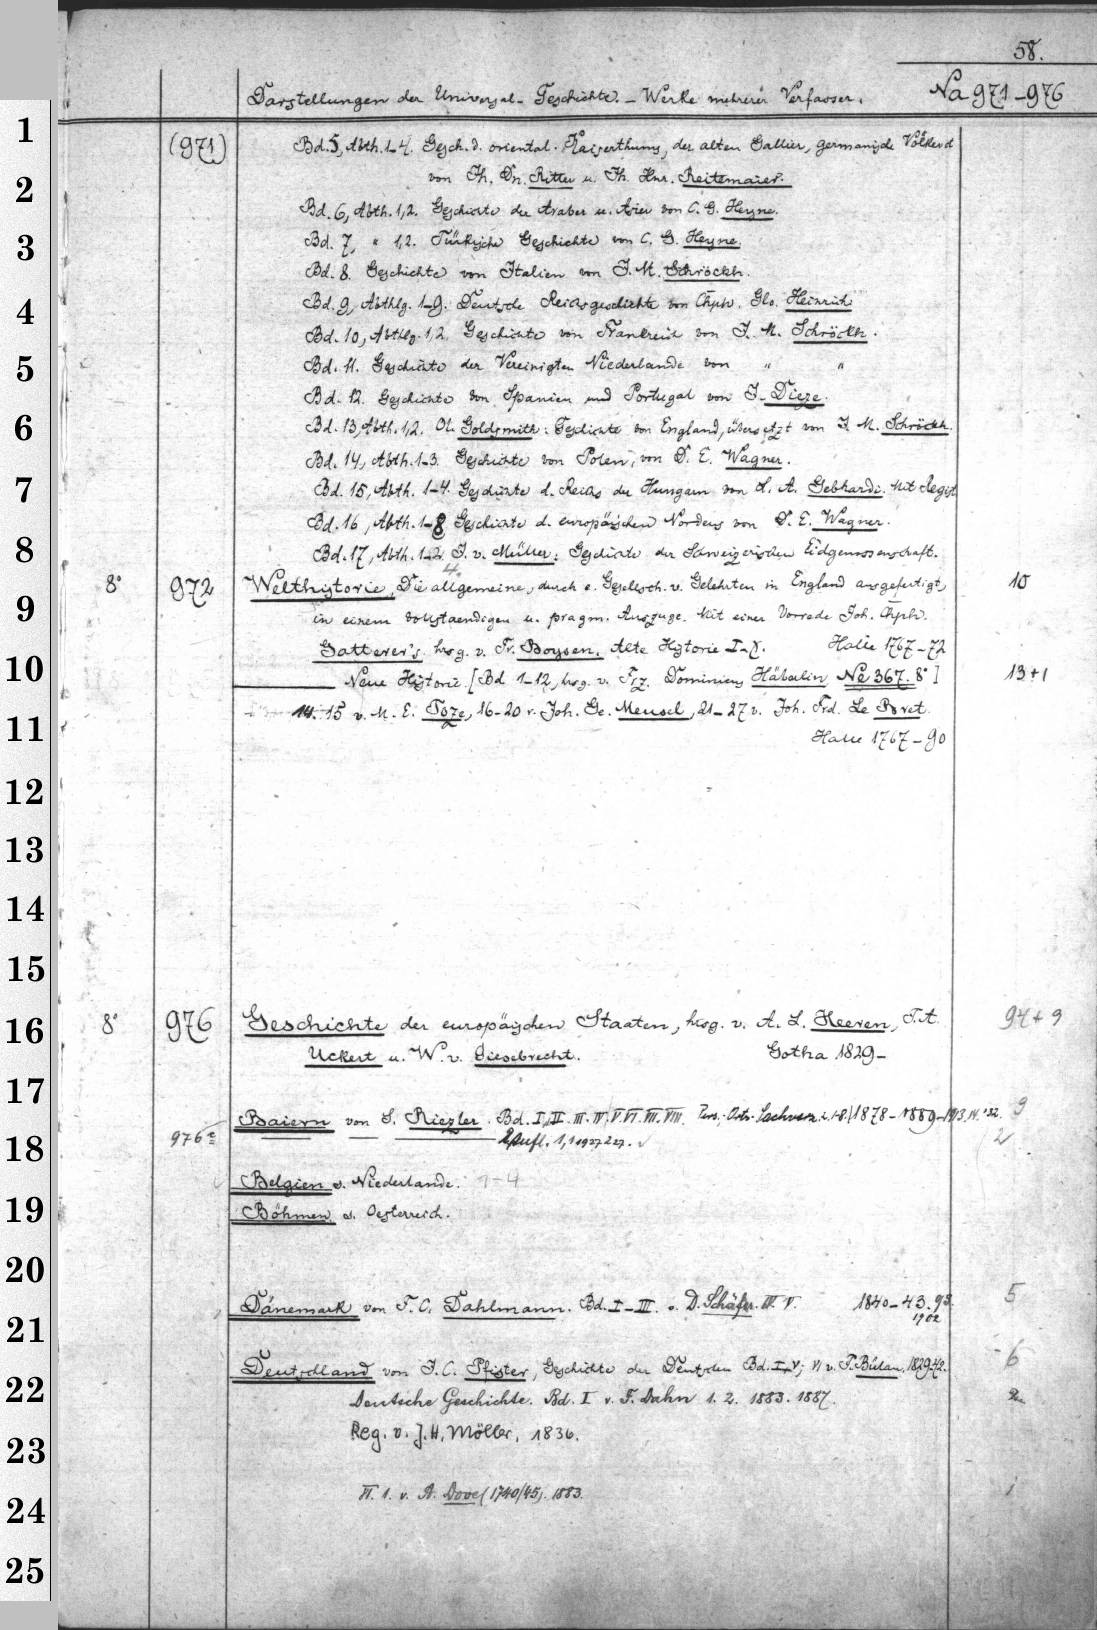 58.
Darstellungen der Universal-Geschichte. – Werke mehrerer Verfasser.
Na 971–976
(971) Bd. 5, Abth. 1–4. Gesch. d. oriental. Kaiserthums, der alten Gallier, germanische Völker
von Th. Ritter u. Th. Hnr. Reitemaier.
Bd. 6, Abth. 1,2. Geschichte der Araber u. von C. G. Heyne.
Bd. 7, " 1,2. Türkische Geschichte von C. G. Heyne.
Bd. 8. Geschichte von Italien von J. M. Schröckh.
Bd. 9, Abthlg. 1–9. Deutsche Reichsgeschichte von Chph. Glo. Heinrich
Bd. 10, Abthlg. 1,2. Geschichte von Frankreich von J. M. Schröckh.
Bd. 11. Geschichte der Vereinigten Niederlande von " "
Bd. 12. Geschichte von Spanien und Portugal von J. Dieze.
Bd. 13, Abth. 1,2. Ol. Goldsmith: Geschichte von England, übersetzt von J. M. Schröckh.
Bd. 14, Abth. 1–3. Geschichte von Polen, von D. E. Wagner.
Bd. 15, Abth. 1–4. Geschichte d. Reichs der Hungarn von L. A. Gebhardi. Mit Regist
Bd. 16, Abth. 1–8 Geschichte d. europäischen Nordens von D. E. Wagner.
Bd. 17, Abth. 1–2 J. v. Müller: Geschichte der Schweizerischen Eidgenossenschaft.
4.
8° 972 Welthistorie, Die allgemeine, durch e. Gesellsch. v. Gelehrten in England ausgefertigt, 10
in einem vollstaendigen u. pragm. Auszuge. Mit einer Vorrede Joh. Chph.
Gatterer's hrsg. v. Fr. Boysen. Alte Historie I–X. Halle 1767–72
Neue Historie. [Bd 1–12, hrsg. v. Frz. Dominicus Häberlin Ne 367. 8°] 13+1
14. 15 v. M. E. Toze, 16–20 v. Joh. Ge. Meusel, 21–27 v. Joh. Frd. Le Bret.
Halle 1767–90
8° 976 Geschichte der europäischen Staaten, hrsg. v. A. L. Heeren, F. A. 94+9
Uckert u. W. v. Giesebrecht. Gotha 1829–
Baiern von S. Riezler. Bd. I, II. III. IV. V. VI. VII. VIII. Pers.- Orts- z. 1-8. 1878–1889– 1913. '32. 9
976 a 2. Aufl. 1,1 1927 2 27. 2
Belgien s. Niederlande. 1–4
Böhmen s. Oesterreich.
Dänemark von F. C. Dahlmann. Bd. I–III. v. D. Schäfer. IV. V. 1840–43. 93. 5
1902
Deutschland von J. C. Pfister, Geschichte der Deutschen Bd. I–V; VI v. F. Bülau. 1829–42. 6
Deutsche Geschichte. Bd. I v. F. Dahn 1. 2. 1883. 1887. 2
Reg. v. J. H. Möller, 1836.
VI. 1. v. A. Dove (1740/45). 1883. 1
1
2
3
4
5
6
7
8
9
10
11
12
13
14
15
16
17
18
19
20
21
22
23
24
25